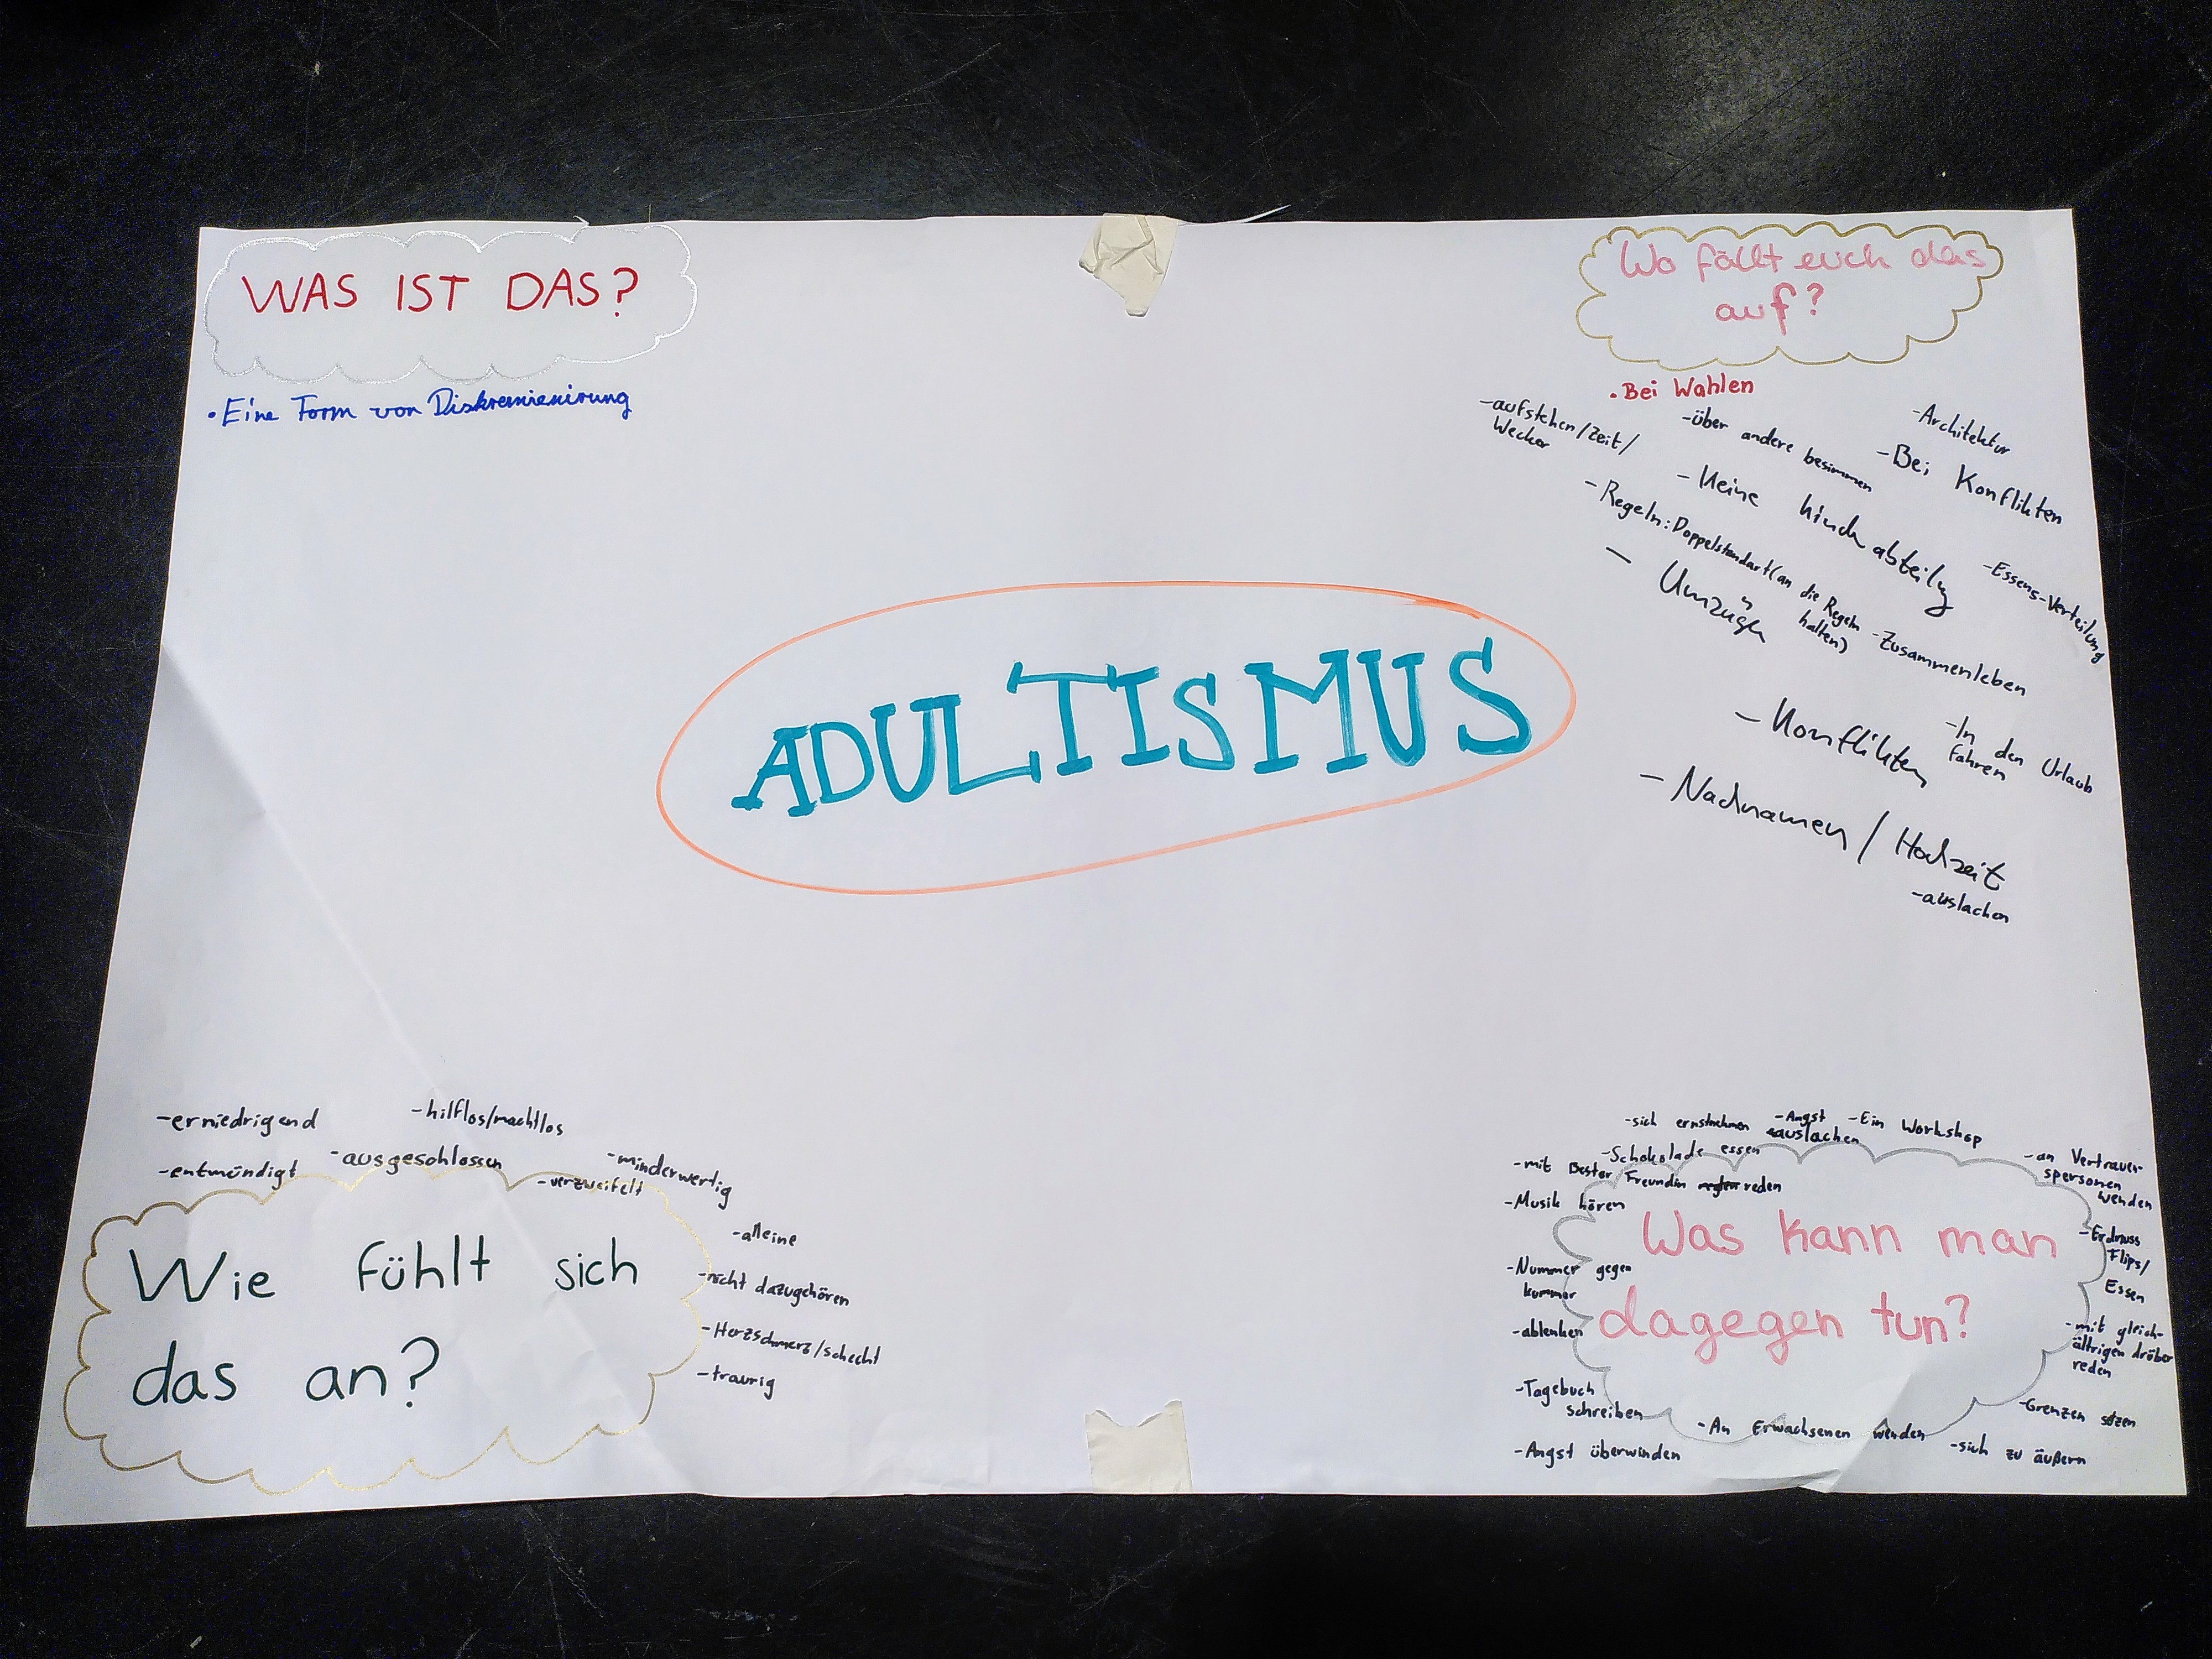 WAS IST DAS?
•Eine Form von Diskremienirung
Wo fällt euch das
auf?
•Bei Wahlen
-aufstehen/Zeit/
Wecker
-über andere besimmen
-Architektur
-Bei Konflikten
-Keine
-Regeln: Doppelstandart (an die Regeln
halten)
-Essens-Verteilung
-Umzüge
-Zusammenleben
-Konflikten
-In den Urlaub
fahren
-Nachnamen / Hochzeit
-auslachen
ADULTISMUS
-erniedrigend
-hilflos/machtlos
-entmündigt
-ausgeschlossen
-minderwertig
-verzweifelt
Wie fühlt sich
das an?
-alleine
-nicht dazugehören
-Herzschmerz/schecht
-traurig
-sich ernstnehmen
-Angst
auslachen
-Ein Workshop
-Schokolade essen
-mit Bester Freundin reden
-Musik hören
-an Vertrauer-
spersonen
wenden
Was kann man
dagegen tun?
-Erdnuss
Flips/
Essen
-Nummer gegen
kummer
-ablenken
-mit gleich-
ältrigen drüber
reden
-Tagebuch
schreiben
-Grenzen setzen
-An Erwachsenen wenden
-sich zu äußern
-Angst überwinden